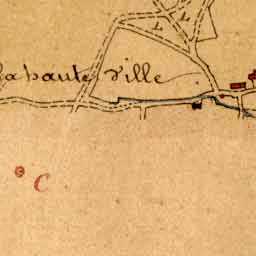 la haute Ville
C